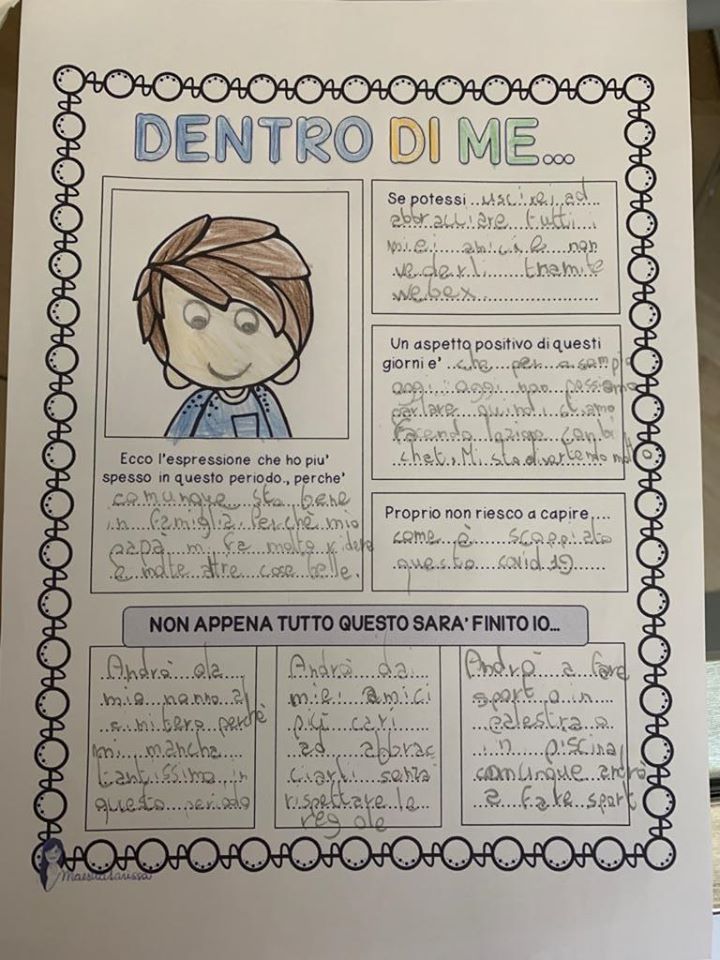 DENTRO DI ME...
Ecco l'espressione che ho piu'
spesso in questo periodo., perche'
comunque sto bene
in famiglia. Perchè mio
papà mi fa molto ridere
e molte altre cose belle.
Se potessi uscirei ad
abbracciare tutti i
miei amici e non
vederli tramite
webex
Un aspetto positivo di questi
giorni e' che per esempio
oggi non possiamo
parlare quindi stiamo
facendo con la
chat. Mi sto divertendo molto
Proprio non riesco a capire....
come è scoppiato
questo covid 19
NON APPENA TUTTO QUESTO SARA' FINITO IO...
Andrò da
mio nonno al
cimitero perchè
mi mancha
tantissimo in
questo periodo
Andrò dai
miei amici
più cari
ad abbrac
ciarli senza
rispettare le
regole
Andrò a fare
sport o in
palestra o
in piscina
comunque andrò
a fare sport
MaestraLarissa